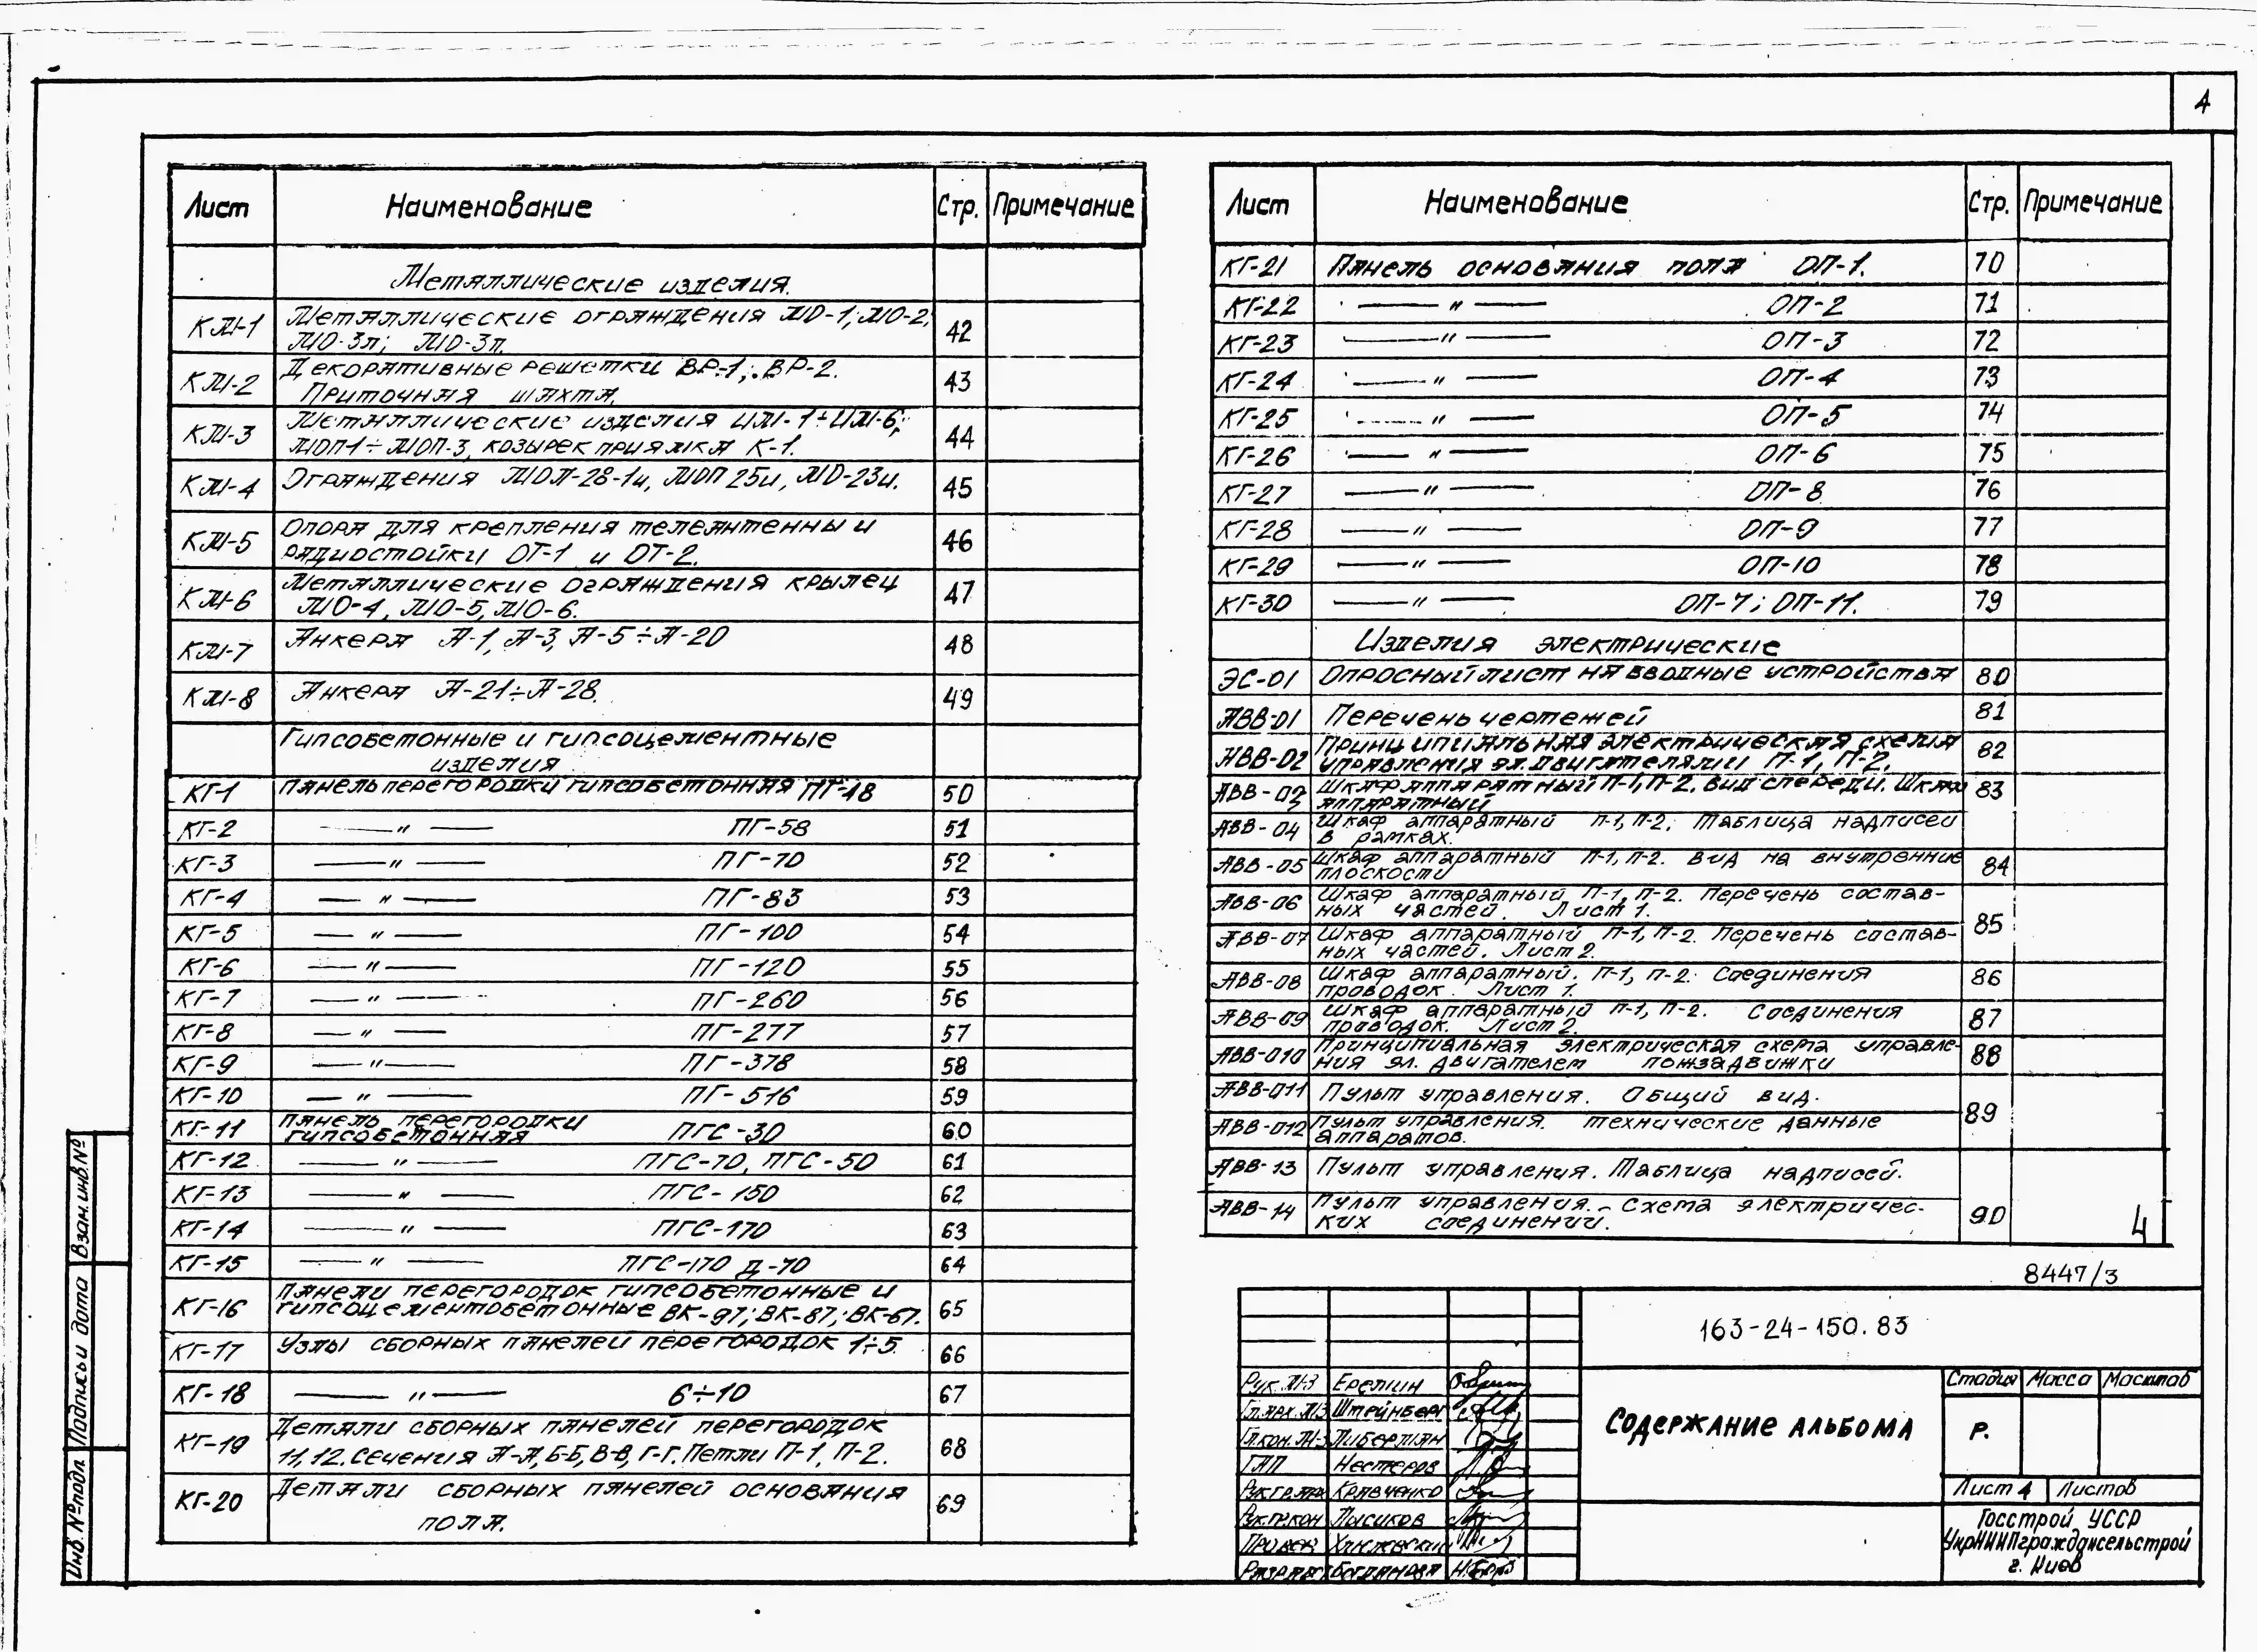 4
Лист Наименование Стр. Примечание
Металлические изделия.
КМ-1 Металлические ограждения МО-1; МО-2; 42
МО-3л; МО-3п.
КМ-2 Декоративные решетки ВР-1; ВР-2. 43
Приточная шахта.
КМ-3 Металлические изделия ИМ-1÷ИМ-6; 44
МОП-1÷МОП-3, козырек приямка К-1.
КМ-4 Ограждения МОЛ-28-1и, МОП 25и, МО-23и. 45
КМ-5 Опора для крепления телеантенны и 46
радиостойки ОТ-1 и ОТ-2.
КМ-6 Металлические ограждения крылец 47
МО-4, МО-5, МО-6.
КМ-7 Анкера А-1, А-3, А-5÷А-20 48
КМ-8 Анкера А-21÷А-28. 49
Гипсобетонные и гипсоцементные
изделия
КГ-1 Панель перегородки гипсобетонная ПГ-48 50
КГ-2 —"— ПГ-58 51
КГ-3 —"— ПГ-70 52
КГ-4 —"— ПГ-83 53
КГ-5 —"— ПГ-100 54
КГ-6 —"— ПГ-120 55
КГ-7 —"— ПГ-260 56
КГ-8 —"— ПГ-277 57
КГ-9 —"— ПГ-378 58
КГ-10 —"— ПГ-516 59
КГ-11 Панель перегородки
гипсобетонная ПГС-30 60
КГ-12 —"— ПГС-70, ПГС-50 61
КГ-13 —"— ПГС-150 62
КГ-14 —"— ПГС-170 63
КГ-15 —"— ПГС-170 Д-70 64
КГ-16 Панели перегородок гипсобетонные и 65
гипсоцементобетонные ВК-97; ВК-87; ВК-67.
КГ-17 Узлы сборных панелей перегородок 1÷5. 66
КГ-18 —"— 6÷10 67
КГ-19 Детали сборных панелей перегородок 68
11, 12. Сечения А-А, Б-Б, В-В, Г-Г. Петли П-1, П-2.
КГ-20 Детали сборных панелей основания 69
пола.
Лист Наименование Стр. Примечание
КГ-21 Панель основания пола ОП-1. 70
КГ-22 —"— ОП-2 71
КГ-23 —"— ОП-3 72
КГ-24 —"— ОП-4 73
КГ-25 —"— ОП-5 74
КГ-26 —"— ОП-6 75
КГ-27 —"— ОП-8 76
КГ-28 —"— ОП-9 77
КГ-29 —"— ОП-10 78
КГ-30 —"— ОП-7; ОП-11. 79
Изделия электрические
ЭС-01 Опросный лист на вводные устройства 80
АВВ-01 Перечень чертежей 81
АВВ-02 Принципиальная электрическая схема 82
управления эл. двигателями П-1, П-2.
АВВ-03 Шкаф аппаратный П-1, П-2. Вид спереди. Шкаф 83
аппаратный
АВВ-04 Шкаф аппаратный П-1, П-2. Таблица надписей
в рамках.
АВВ-05 Шкаф аппаратный П-1, П-2. Вид на внутренние 84
плоскости
АВВ-06 Шкаф аппаратный П-1, П-2. Перечень состав-
ных частей. Лист 1. 85
АВВ-07 Шкаф аппаратный П-1, П-2. Перечень состав-
ных частей. Лист 2.
АВВ-08 Шкаф аппаратный. П-1, П-2. Соединения 86
проводок. Лист 1.
АВВ-09 Шкаф аппаратный П-1, П-2. Соединения 87
проводок. Лист 2.
АВВ-010 Принципиальная электрическая схема управле- 88
ния эл. двигателем пожзадвижки
АВВ-011 Пульт управления. Общий вид. 89
АВВ-012 Пульт управления. технические данные
аппаратов.
АВВ-13 Пульт управления. Таблица надписей.
АВВ-14 Пульт управления. Схема электричес- 90
ких соединений.
4
8447/3
163-24-150.83
Рук. М-3 Еремин
Гл.арх.М3 Штейнберг
Гл.кон.М-3 Либерман
ГАП Нестеров
Рук.гр.арх Кравченко
Рук.гр.кон Лысиков
Провер
Разраб Богданова
Содержание альбома
Стадия Масса Масштаб
Р.
Лист 4 Листов
Госстрой УССР
УкрНИИПграждансельстрой
г. Киев
Инв. № подл. Подпись и дата Взам. инв. №